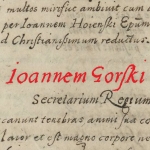 multos mirifice ambivit cum a
per Ioannem Hoienski Epum
d Christianissimum reductus.
Ioannem Gorski
Secretarium Regium
canunt tenebras animi sua co
lavor et est magno corpore ne